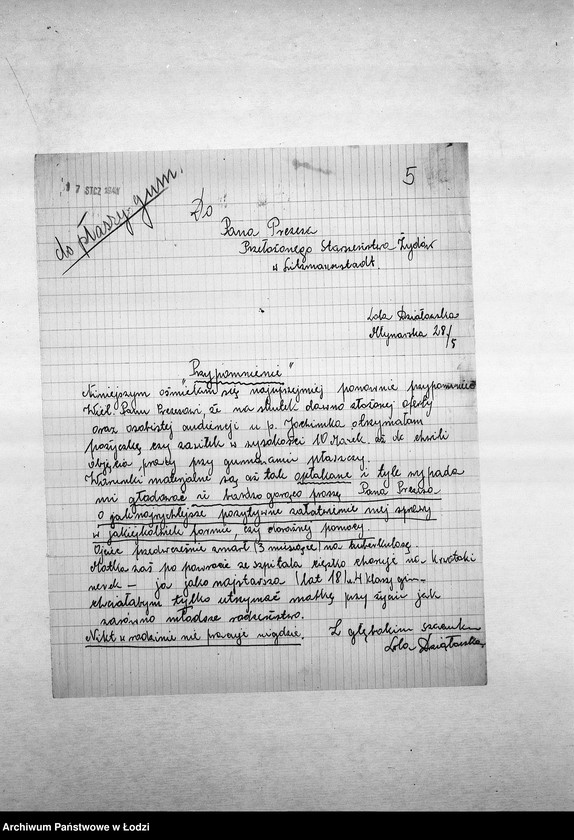 7 STCZ 194
5
do płaszy gum.
Do
Pana Prezesa
Przełożonego Starszeństwa Żydów
w Litzmannstadt.
Lola Działowska
Młynarska 28/5
"Przypomnienie"
Niniejszym ośmielam się najuprzejmiej ponownie przypomnieć
Wiel. Panu Prezesowi, że na skutek dawno złożonej oferty
oraz osobistej audiencji u p. Jochimka otrzymałam
pożyczkę czy zasiłek w wysokości 10 Marek. aż do chwili
objęcia pracy przy gumowaniu płaszczy.
Warunki materjalne są aż tak opłakane i tyle wypada
mi głodować, iż bardzo gorąco proszę Pana Prezesa
o jaknajrychlejsze pozytywne załatwienie mej sprawy
w jakiejkolwiek formie, czy doraźnej pomocy.
Ojciec przedwcześnie zmarł (3 miesiące) na tuberkulozę.
Matka zaś po powrocie ze szpitala ciężko choruje na krwotoki
nerek – ja jako najstarsza (lat 18) z 4 klasy gim.
chciałabym tylko utrzymać matkę przy życiu jak
zarówno młodsze rodzeństwo.
Nikt w rodzinie nie pracuje nigdzie.
Z głębokim szacunkiem
Lola Działowska
Archiwum Państwowe w Łodzi